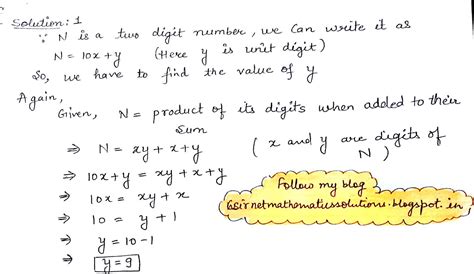 Solution: 1
∵ N is a two digit number, we can write it as
N = 10x + y (Here y is unit digit)
So, we have to find the value of y
Again,
Given, N = product of its digits when added to their
sum
⇒ N = xy + x + y ( x and y are digits of
N )
⇒ 10x + y = xy + x + y
⇒ 10x = xy + x
⇒ 10 = y + 1
⇒ y = 10 - 1
⇒ y = 9
Follow my blog
Csirnetmathematicssolutions.blogspot.in